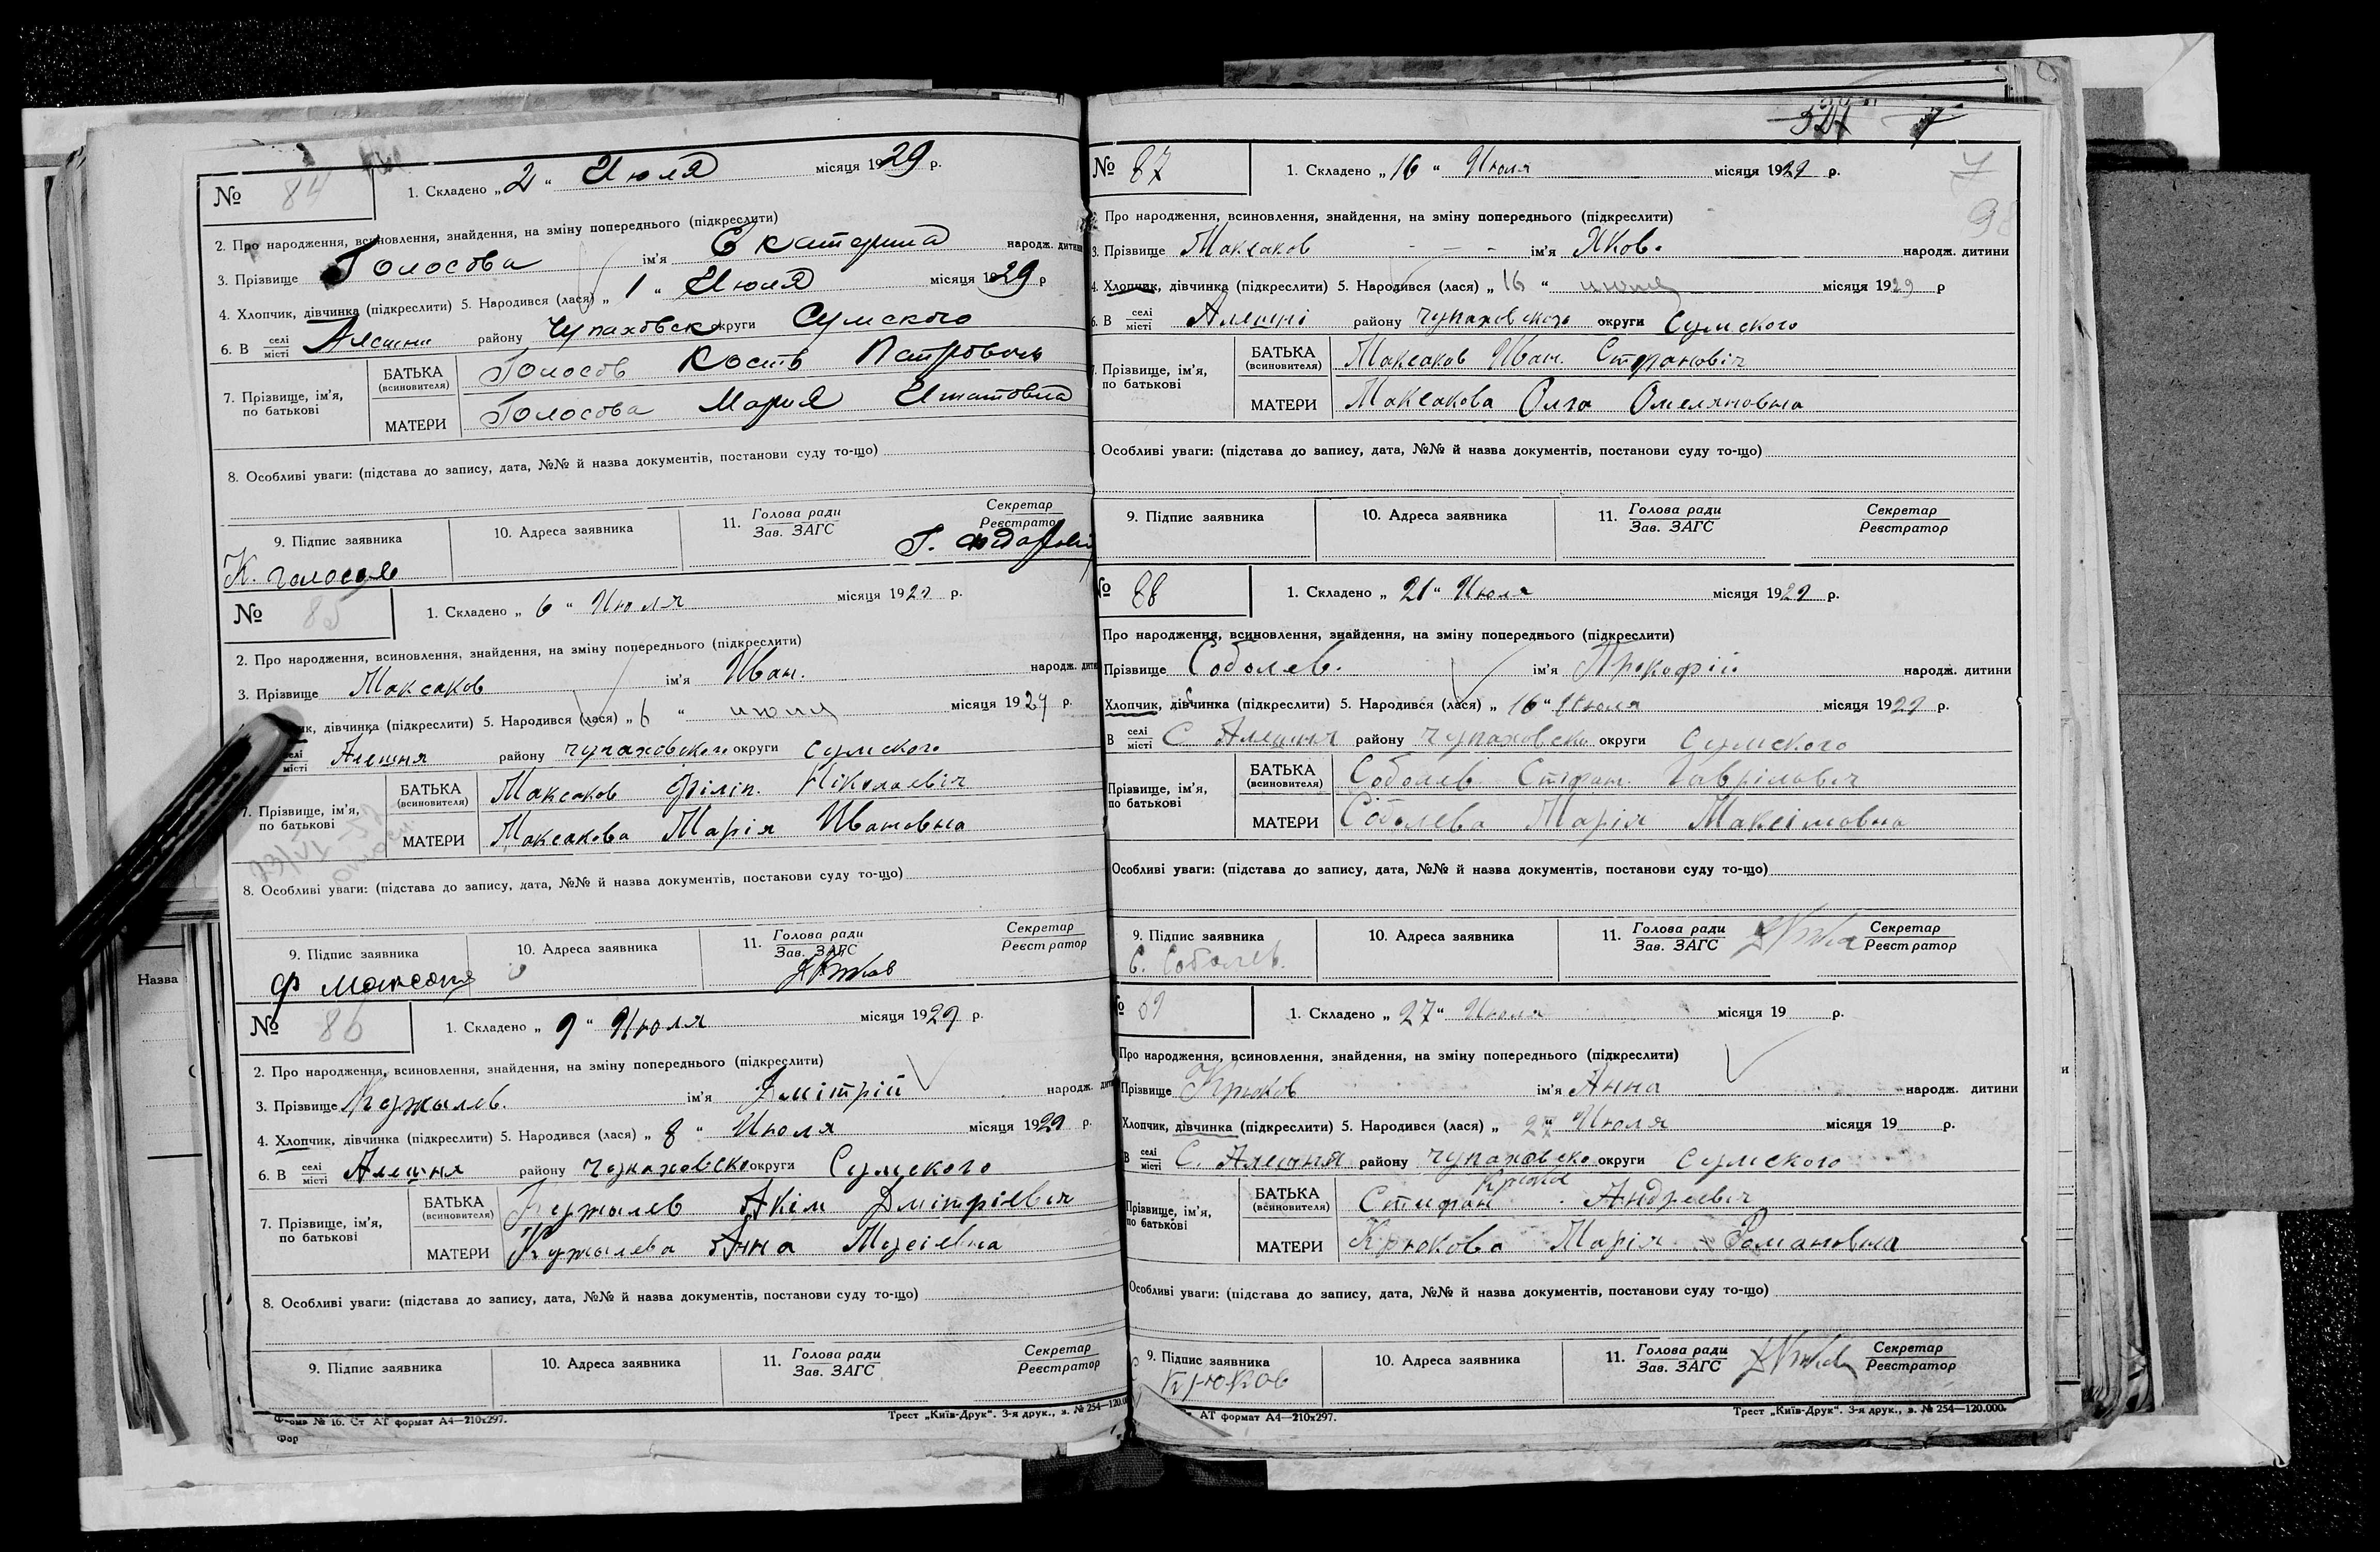 № 84 1. Складено „2“ Июля місяця 1929 р.
2. Про народження, всиновлення, знайдення, на зміну попереднього (підкреслити)
3. Прізвище Голосова ім'я Екатерина народж. дитини
4. Хлопчик, дівчинка (підкреслити) 5. Народився (лася) „1“ Июля місяця 1929 р
6. В селі місті Алешни району Чупаховск округи Сумского
7. Прізвище, ім'я, по батькові
БАТЬКА (всиновителя) Голосов Кость Патрович
МАТЕРИ Голосова Мария Игнатовна
8. Особливі уваги: (підстава до запису, дата, №№ й назва документів, постанови суду то-що)
9. Підпис заявника 10. Адреса заявника 11. Голова ради Зав. ЗАГС Секретар Реєстратор
К. Голосов
№ 85 1. Складено „6“ Июля місяця 1929 р.
2. Про народження, всиновлення, знайдення, на зміну попереднього (підкреслити)
3. Прізвище Максаков ім'я Иван. народж. дити
ик, дівчинка (підкреслити) 5. Народився (лася) „6“ июля місяця 1929 р.
селі місті Алешня району Чупаховского округи Сумского
7. Прізвище, ім'я, по батькові
БАТЬКА (всиновителя) Максаков Філіп. Ніколаевіч
МАТЕРИ Максакова Марія Ивановна
8. Особливі уваги: (підстава до запису, дата, №№ й назва документів, постанови суду то-що)
9. Підпис заявника 10. Адреса заявника 11. Голова ради Зав. ЗАГС Секретар Реєстратор
Ф
№ 86 1. Складено „9“ Июля місяця 1929 р.
2. Про народження, всиновлення, знайдення, на зміну попереднього (підкреслити)
3. Прізвище Кужылев. ім'я Дмітрій народж. дит
4. Хлопчик, дівчинка (підкреслити) 5. Народився (лася) „8“ Июля місяця 1929 р.
6. В селі місті Алешня району Чупаховско округи Сумского
7. Прізвище, ім'я, по батькові
БАТЬКА (всиновителя) Кужылев Акім Дмітріевіч
МАТЕРИ Кужылева Анна Мусіевна
8. Особливі уваги: (підстава до запису, дата, №№ й назва документів, постанови суду то-що)
9. Підпис заявника 10. Адреса заявника 11. Голова ради Зав. ЗАГС Секретар Реєстратор
Форма № 16. Ст АТ формат А4—210х297. Трест „Київ-Друк“. 3-я друк., з. № 254—120.0
Фор
Назва
327 7
7
98
№ 87 1. Складено „16“ Июля місяця 1929 р.
Про народження, всиновлення, знайдення, на зміну попереднього (підкреслити)
3. Прізвище Максаков ім'я Яков. народж. дитини
4. Хлопчик, дівчинка (підкреслити) 5. Народився (лася) „16“ июля місяця 1929 р
6. В селі місті Алешні району Чупаховского округи Сумского
Прізвище, ім'я, по батькові
БАТЬКА (всиновителя) Максаков Иван. Стфановіч
МАТЕРИ Максакова Олга Омеляновна
Особливі уваги: (підстава до запису, дата, №№ й назва документів, постанови суду то-що)
9. Підпис заявника 10. Адреса заявника 11. Голова ради Зав. ЗАГС Секретар Реєстратор
№ 88 1. Складено „21“ Июля місяця 1929 р.
Про народження, всиновлення, знайдення, на зміну попереднього (підкреслити)
Прізвище Соболев. ім'я Прокофій народж. дитини
Хлопчик, дівчинка (підкреслити) 5. Народився (лася) „16“ Июля місяця 1929 р.
В селі місті С Алешня району Чупаховско округи Сумского
Прізвище, ім'я, по батькові
БАТЬКА (всиновителя) Соболев. Стіфан. Гаврілович
МАТЕРИ Соболева Марія Максімовна
Особливі уваги: (підстава до запису, дата, №№ й назва документів, постанови суду то-що)
9. Підпис заявника 10. Адреса заявника 11. Голова ради Зав. ЗАГС Секретар Реєстратор
С. Соболев.
№ 89 1. Складено „27“ Июля місяця 19 р.
Про народження, всиновлення, знайдення, на зміну попереднього (підкреслити)
Прізвище Крюков ім'я Анна народж. дитини
Хлопчик, дівчинка (підкреслити) 5. Народився (лася) „27“ Июля місяця 19 р.
В селі місті С. Алешня району Чупаховско округи Сумского
Прізвище, ім'я, по батькові
Крюков
БАТЬКА (всиновителя) Стифан Андреевіч
МАТЕРИ Крюкова Марія Романовна
Особливі уваги: (підстава до запису, дата, №№ й назва документів, постанови суду то-що)
9. Підпис заявника 10. Адреса заявника 11. Голова ради Зав. ЗАГС Секретар Реєстратор
Крюков
АТ формат А4—210х297. Трест „Київ-Друк“. 3-я друк., з. № 254—120.000.